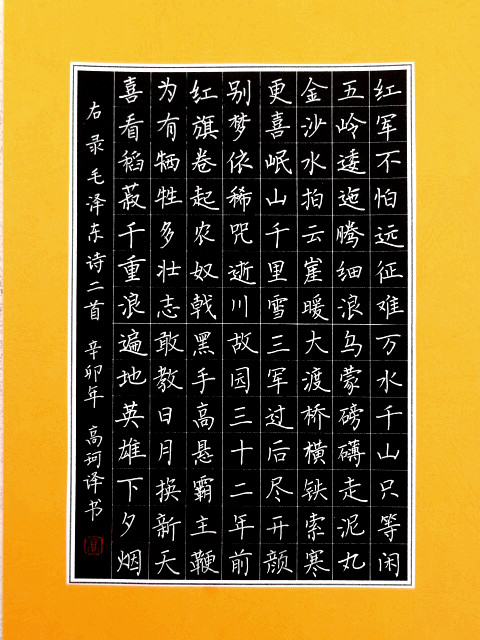 红军不怕远征难万水千山只等闲
五岭逶迤腾细浪乌蒙磅礴走泥丸
金沙水拍云崖暖大渡桥横铁索寒
更喜岷山千里雪三军过后尽开颜
别梦依稀咒逝川故园三十二年前
红旗卷起农奴戟黑手高悬霸主鞭
为有牺牲多壮志敢教日月换新天
喜看稻菽千重浪遍地英雄下夕烟
右录毛泽东诗二首 辛卯年 高珂译书